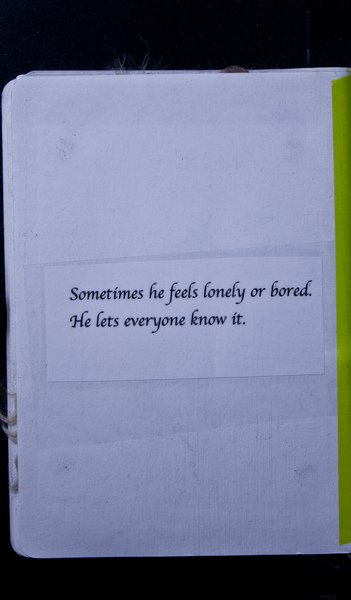 Sometimes he feels lonely or bored.
He lets everyone know it.